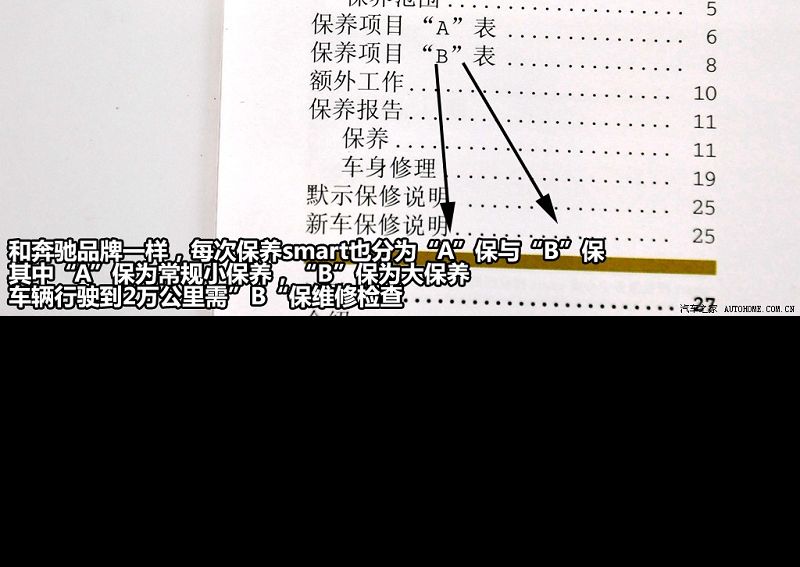 保养范围 5
保养项目“A”表 6
保养项目“B”表 8
额外工作 10
保养报告 11
保养 11
车身修理 19
默示保修说明 25
新车保修说明 25
和奔驰品牌一样，每次保养smart也分为“A”保与“B”保
其中“A”保为常规小保养，“B”保为大保养
车辆行驶到2万公里需”B“保维修检查
27
汽车之家 AUTOHOME.COM.CN